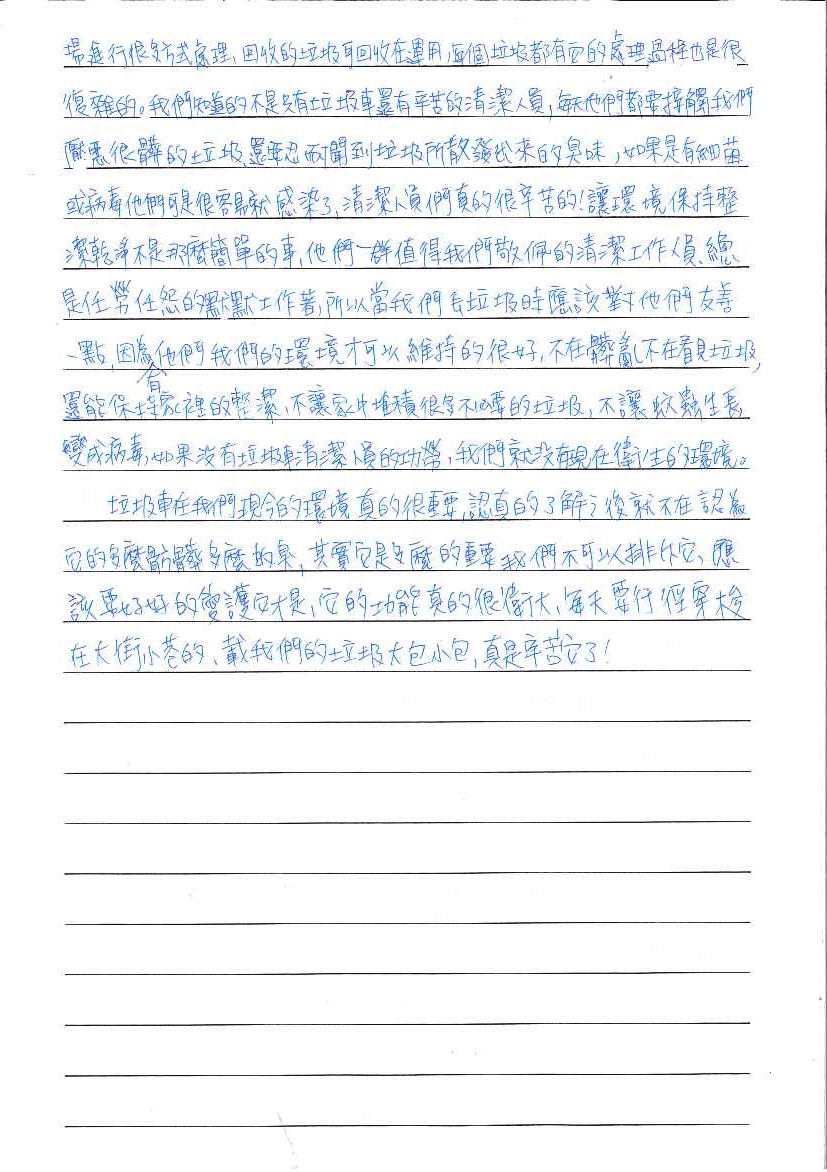 場進行很多方式處理,回收的垃圾可回收在運用,每個垃圾都有它的處理過程也是很
復雜的。我們知道的不是只有垃圾車還有辛苦的清潔人員,每天他們都要接觸我們
厭惡很髒的垃圾,還要忍耐聞到垃圾所散發出來的臭味,如果是有細菌
或病毒他們可是很容易就感染了,清潔人員們真的很辛苦的!讓環境保持整
潔乾淨不是那麼簡單的事,他們一群值得我們敬佩的清潔工作人員、總
是任勞任怨的默默工作著,所以當我們丟垃圾時應該對他們友善
一點,因為有他們我們的環境才可以維持的很好,不在髒亂不在看見垃圾,
還能保持家裡的整潔,不讓家中堆積很多不必要的垃圾,不讓蚊蟲生長
變成病毒,如果沒有垃圾車清潔人員的功勞,我們就沒有現在衛生的環境。
垃圾車在我們現今的環境真的很重要,認真的了解之後就不在認為
它的多麼骯髒多麼的臭,其實它是多麼的重要我們不可以排斥它、應
該要好好的愛護它才是,它的功能真的很偉大,每天要行徑穿梭
在大街小巷的、載我們的垃圾大包小包,真是辛苦它了!